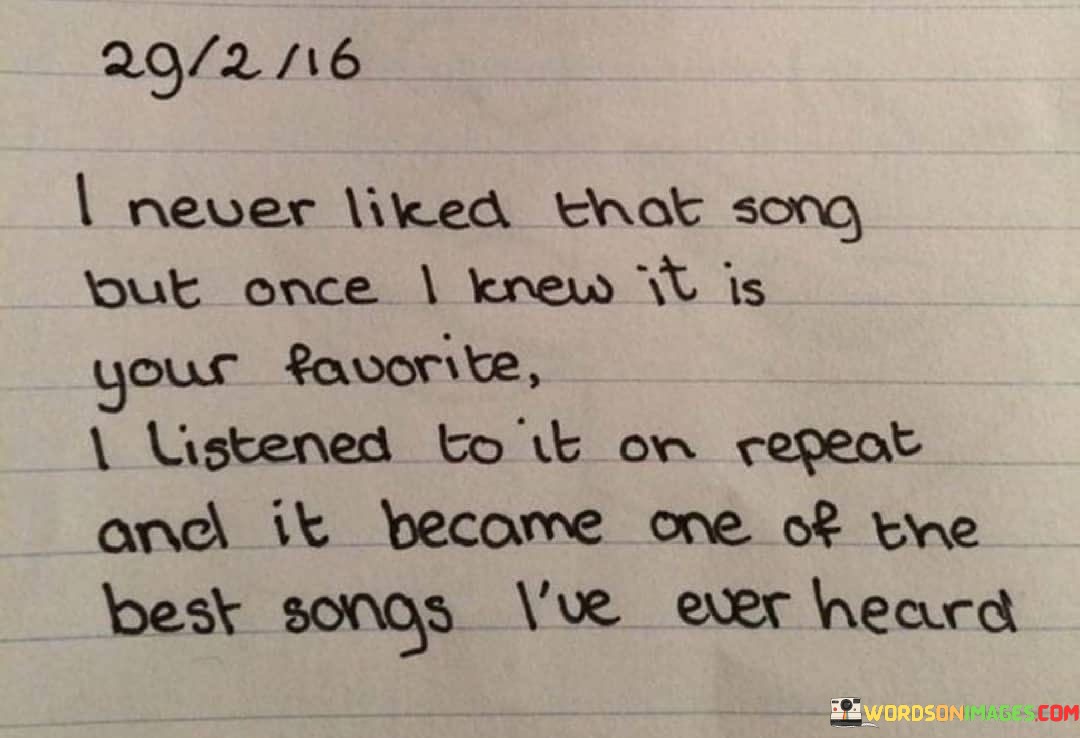 29/2/16
I never liked that song
but once I knew it is
your favorite,
I listened to it on repeat
and it became one of the
best songs I've ever heard
WORDSONIMAGES.COM